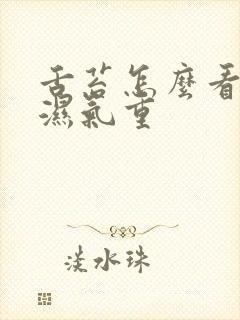 舌苔怎麼看
濕氣重
淡水珠